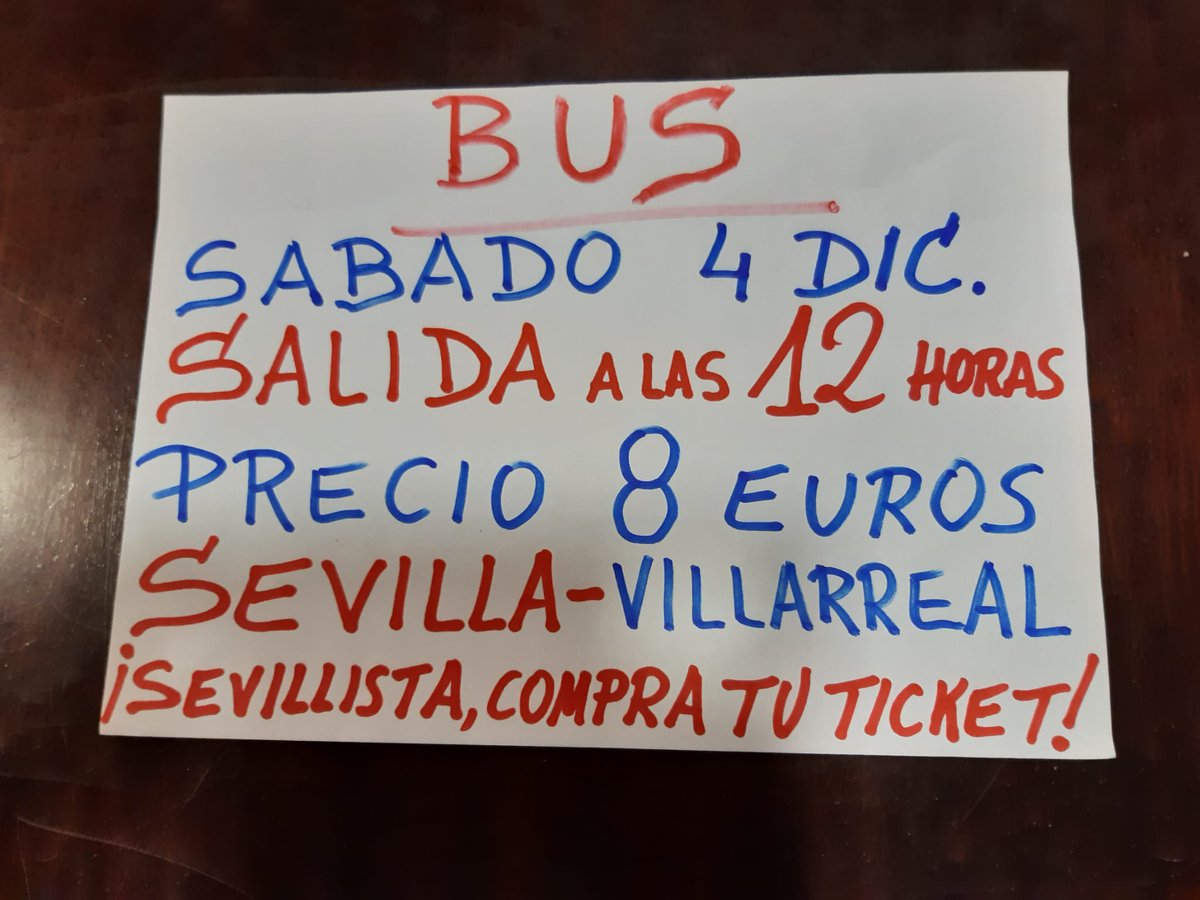 BUS
SABADO 4 DIC.
SALIDA A LAS 12 HORAS
PRECIO 8 EUROS
SEVILLA-VILLARREAL
¡SEVILLISTA, COMPRA TU TICKET!